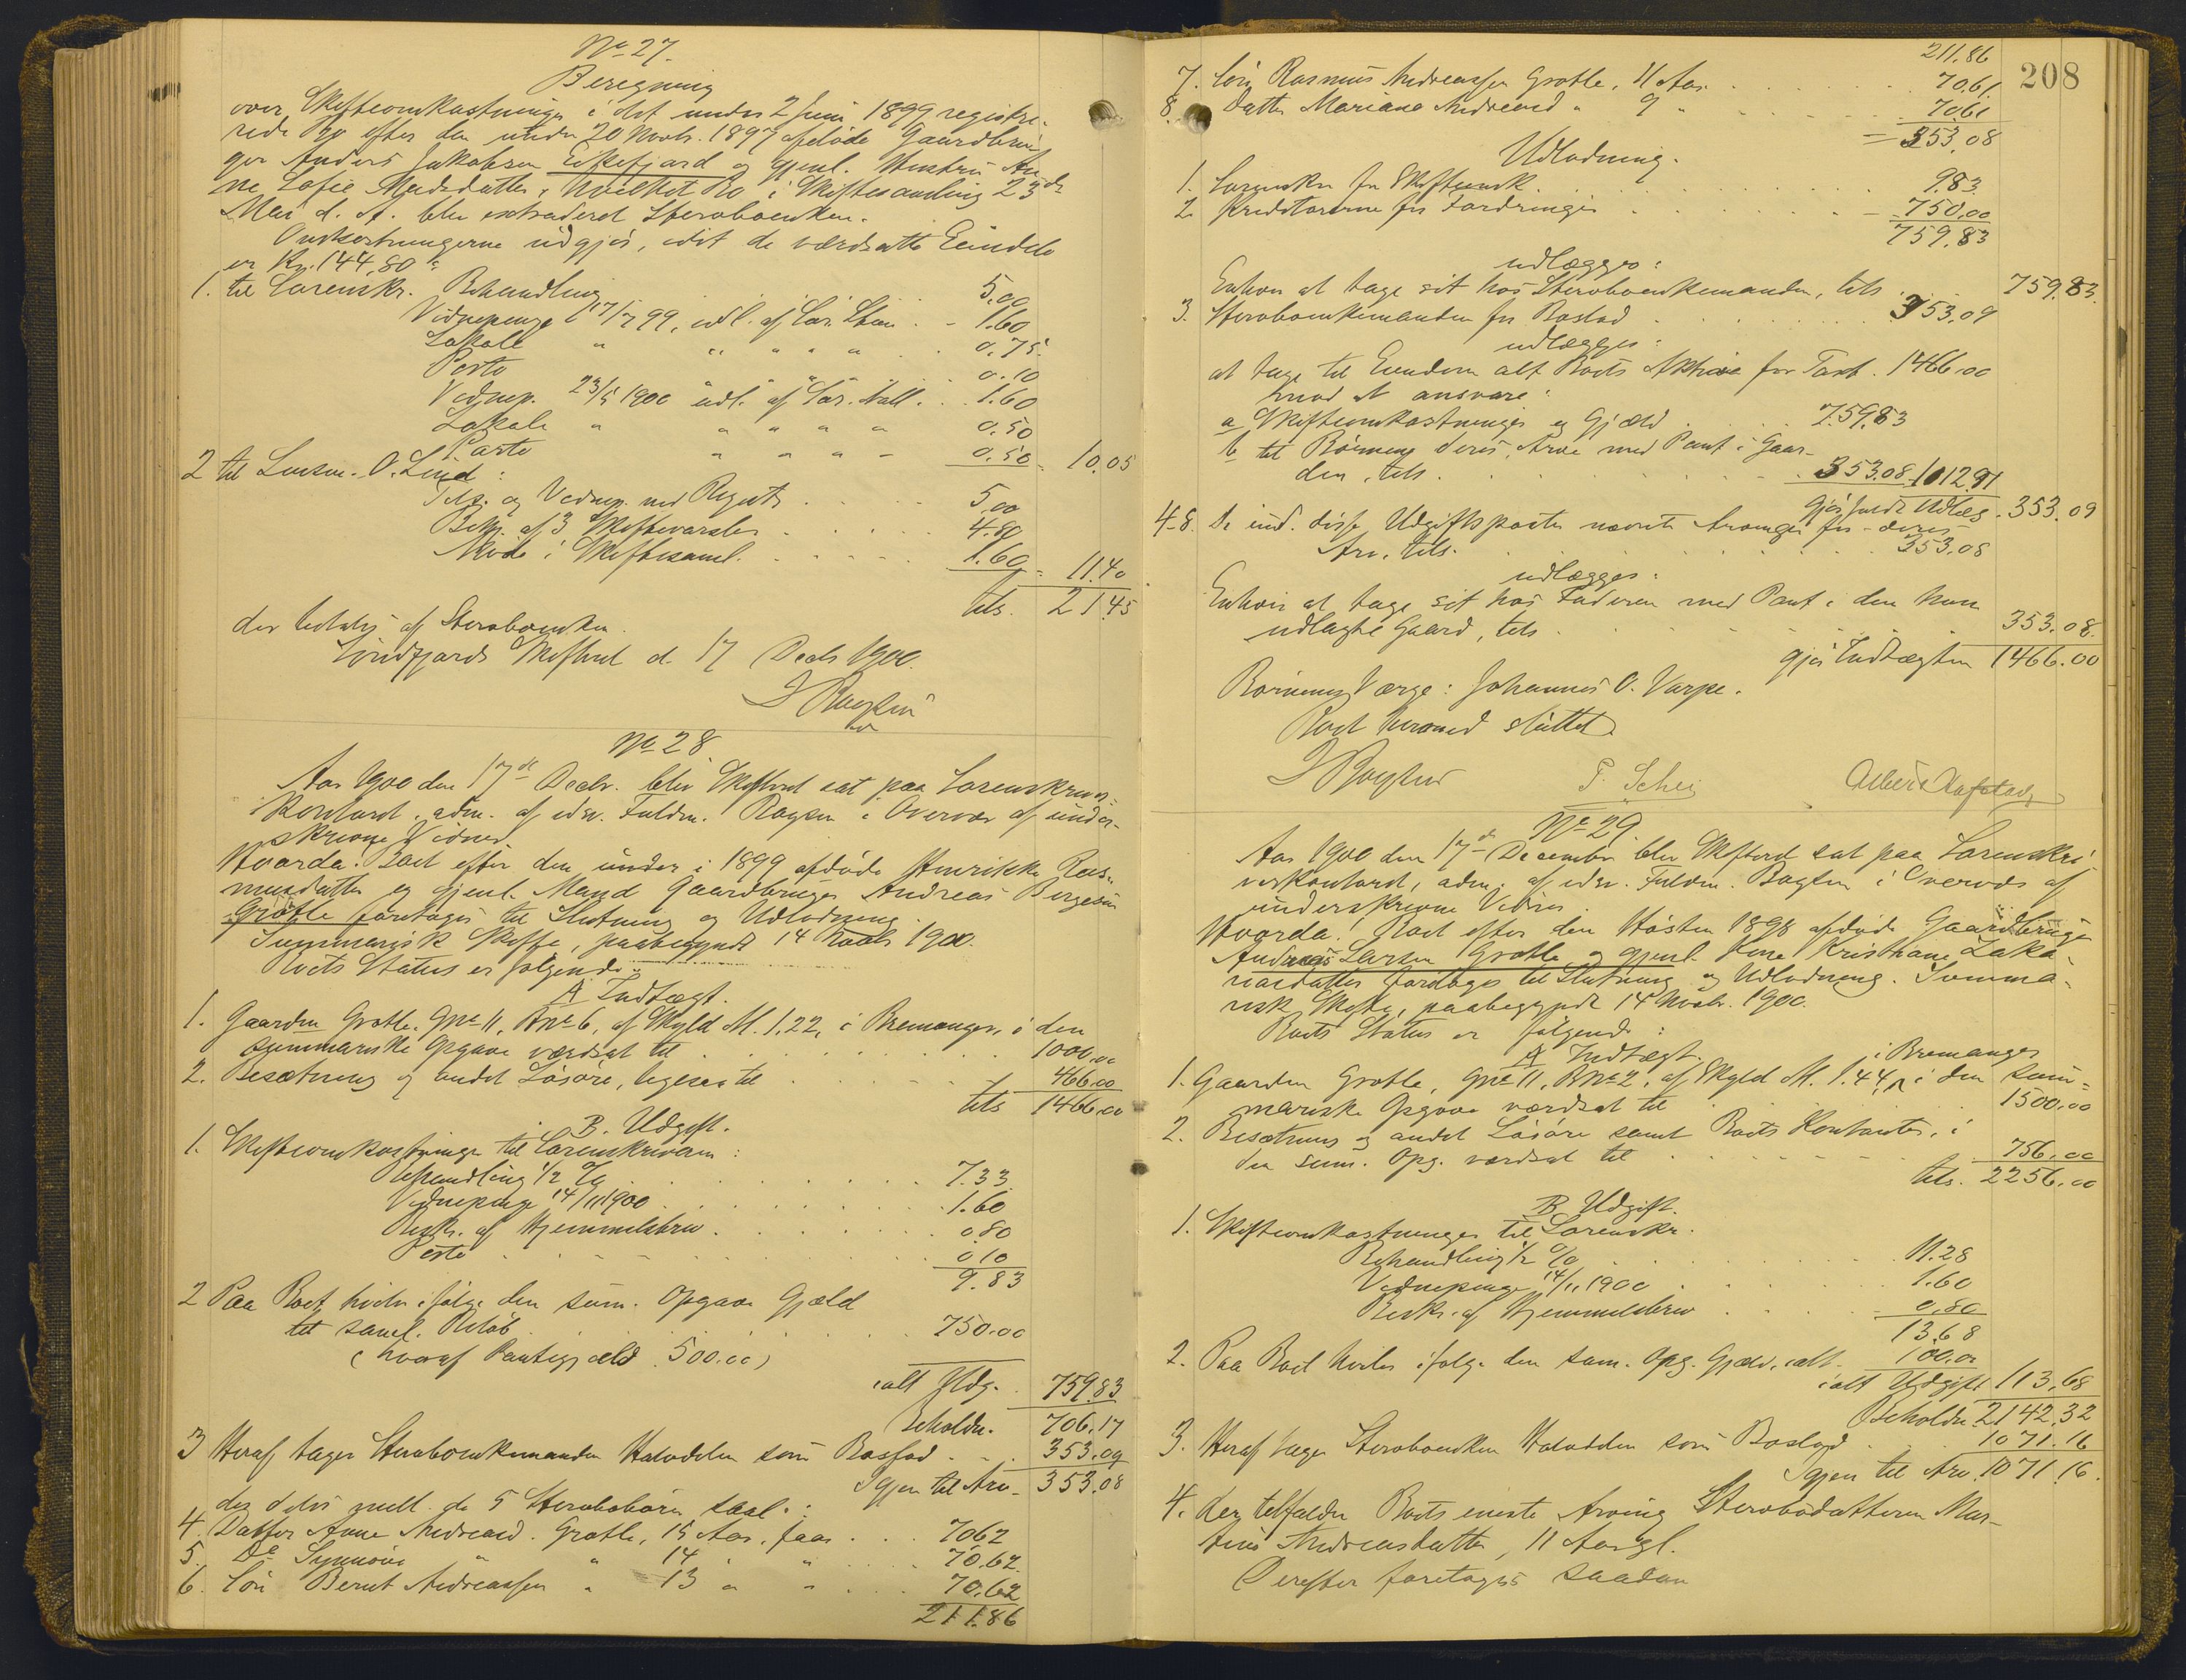 No 27.
Beregning
over Skifteomkostninger i det under 2 Juni 1899 registre-
rede Bo efter den under 20 Novbr. 1897 afdøde Gaardbru-
ger Anders Jakobsen Eikefjord og gjenl. Hustru An-
ne Sofie Madsdatter, hvilket Bo i Skiftesamling 23de
Mai d. A. blev extraderet Sterboenken.
Omkostningerne udgjør, idet de værdsatte Eiendele
er Kr. 144,80:
1. til Sorenskr. Behandling 5,00
Vidnepenge 17/7 99, udl. af Sor. 1.60
Lokale " " " " " 0.75
Porto " " " 0.10
Vidnep. 23/5 1900 udl. af Sor. 1.60
Lokale " " " " " 0.50
Porto " " " " 0.50 = 10.05
2 til Lensm. O. Lind:
og Vidnep. ved Registr. 5,00
Betj. af 3 Skiftevarsler 4.80
Møde i Skiftesaml. 1.60 = 11.40
tils. 21.45
der betales af Sterboenken.
Søndfjords Skifteret d. 17 Decbr 1900.
No 28
Aar 1900 den 17de Decbr. blev Skifteret sat paa Sorenskriver-
kontoret, adm. af edsv. Fuldm. i Overvær af under-
skrevne Vidner
Hvorda: Boet efter den under i 1899 afdøde Henrikke Ras-
musdatter og gjenl. Mand Gaardbruger Andreas Børgesen
Grotle foretoges til Slutning og Udlodning.
Summarisk Skifte, paabegyndt 14 Novbr 1900.
Boets Status er følgende:
A Indtægt.
1. Gaarden Grotle. Gno 11, Bno 6, af Skyld M. 1.22, i Bremanger, i den
summariske Opgave værdsat til 1000,00
2. Besætning og andet Løsøre, ligesaa til 466.00
tils 1466,00
B. Udgift.
1. Skifteomkostninger til Sorenskriveren:
Behandling 1/2 % 7.33
Vidnepenge 14/11 1900 1.60
Beskr. af Hjemmelsbrev 0.80
Porto 0 10
9.83
2 Paa Boet hviler ifølge den sum. Opgave Gjæld
til saml. Beløb 750.00
(hvoraf Pantegjæld 500.00)
ialt Udg. 759.83
Beholdn. 706.17
3 Heraf tager Sterboenkemanden Halvdelen som Boslod 353.09
Igjen til Arv 353.08
der deles mell. de 5 Sterbobørn saal.:
4. Datter Anne Andreasd. Grotle, 15 Aar, faar 70.62
5. Do Synnøve " " 14 " " 70.62
6. Søn Bernt Andreassen " 13 " " 70.62
211.86
208
211.86
7. Søn Rasmus Andreassen Grotle, 11 Aar 70.61
8. Datter Mariane Andreasd " 9 " 70.61
= 353.08
Udlodning.
1. Sorenskr. for Skifteomk. 9.83
2. Kreditorerne for Fordringer 750,00
759.83
udlægges:
Enhver at tage sit hos Sterboenkemanden, tils 759.83.
3. Sterboenkemanden for Boslod 353.09
udlægges:
at tage til Eiendom alt Boets Aktiva for Taxt 1466.00
mod at ansvare:
a Skifteomkostninger og Gjæld 759.83
b til Børnene deres Arve med Pant i Gaar-
den, tils. 353.08 1012.91
gjør Udlæg 353.09
4-8. De ind. disse Udgiftsposter nævnte Arvinger for deres
Arv, tils. 353.08
udlægges:
Enhver at tage sit hos Faderen med Pant i den ham
udlagte Gaard, tils 353.08.
gjør Indtægten 1466.00
Børnenes Værge: Johannes O. Varpe.
Boet hermed sluttet
P. Schei Albert Hafstad
No 29.
Aar 1900 den 17de December blev Skifteret sat paa Sorenskri-
verkontoret, adm. af edsv. Fuldm. i Overvær af
underskrevne Vidner.
Hvorda: Boet efter den Høsten 1898 afdøde Gaardbruger
Andreas Larsen Grotle og gjenl. Kone Kristiane Zaka-
riasdatter foretoges til Slutning og Udlodning. Summa-
risk Skifte, paabegyndt 14 Novbr. 1900.
Boets Status er følgende:
A Indtægt.
i Bremanger
1. Gaarden Grotle, Gno 11, Bno 2, af Skyld M. 1.44, i den sum-
mariske Opgave værdsat til 1500.00
2. Besætning og andet Løsøre samt Boets Kontanter, i
den sum. Opg. værdsat til 756.00
tils. 2256.00
B Udgift.
1. Skifteomkostninger til Sorenskr.
Behandling 1/2 % 11.28
Vidnepenge 14/11 1900 1.60
Beskr. af Hjemmelsbrev 0.80
13.68
2. Paa Boet hviler ifølge den sum. Opg. Gjæld, ialt 100.00
ialt Udgift 113,68
Beholdn. 2142.32
3. Heraf tager Sterboenken Halvdelen som Boslod 1071.16
Igjen til Arv. 1071.16.
4. der tilfalder Boets eneste Arving Sterbodatteren Mar-
Andreasdatter, 11 Aar gl.
Derefter foretoges saadan